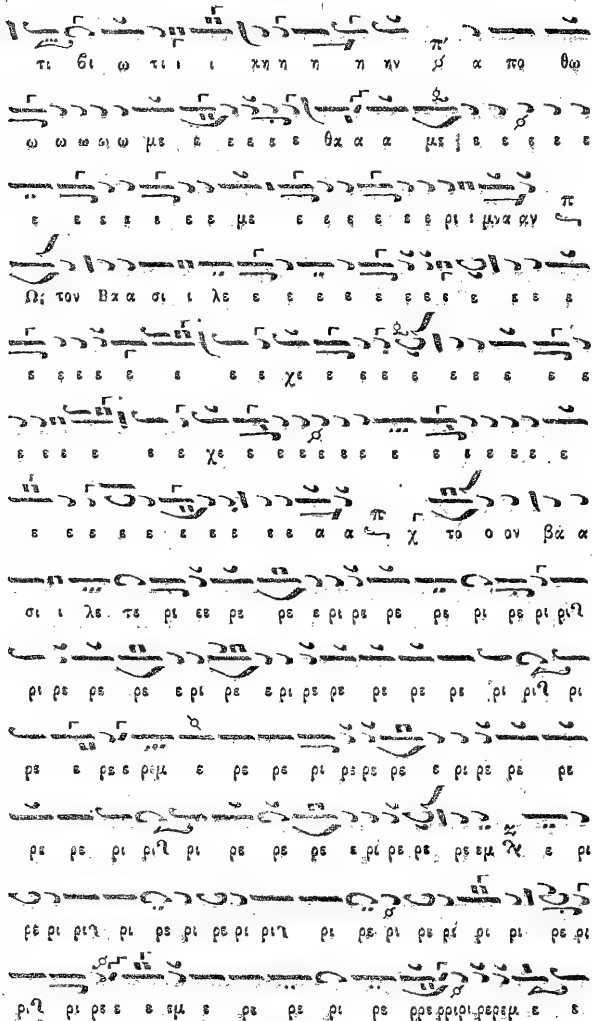 τι βι ω τι ι ι κη η η η ην π' α πο θω
ω ω ω ω ω με ε ε ε ε ε θα α α με ε ε ε ε ε
ε ε ε ε ε ε ε με ε ε ε ε ε ε ε ρι ι μνα αν π
Ως τον Βα α σι ι λε ε ε ε ε ε ε ε ε ε ε ε ε
ε ε ε ε ε ε ε ε χε ε ε ε ε ε ε ε ε ε
ε ε ε ε ε ε χε ε ε ε ε ε ε ε ε ε ε ε ε ε ε
ε ε ε ε ε ε ε ε ε α α π χ το ο ον βα α
σι ι λε τε ρι εε ρε ρε ε ρι ρε ρε ρε ρι ρε ρι ριρ
ρι ρε ρε ρε ε ρι ρε ε ρι ρε ρε ρε ρε ρε ρι ριρ ρι
ρε ε ρε ε ρεμ ε ρε ρε ρι ρε ρε ρε ε ρι ρε ρε ρε
ρε ρε ρι ριρ ρι ρε ρε ρε ε ρι ρε ρε ρε εμ ε ρι
ρε ρι ριρ ρι ρε ρι ρε ρι ριρ ρι ρε ρι ρε ρε ρι ρι ρε ρι
ριρ ρι ρε ε ε εμ ε ρε ρε ρι ρε ρρε ρριρι ρερεμ ε ε